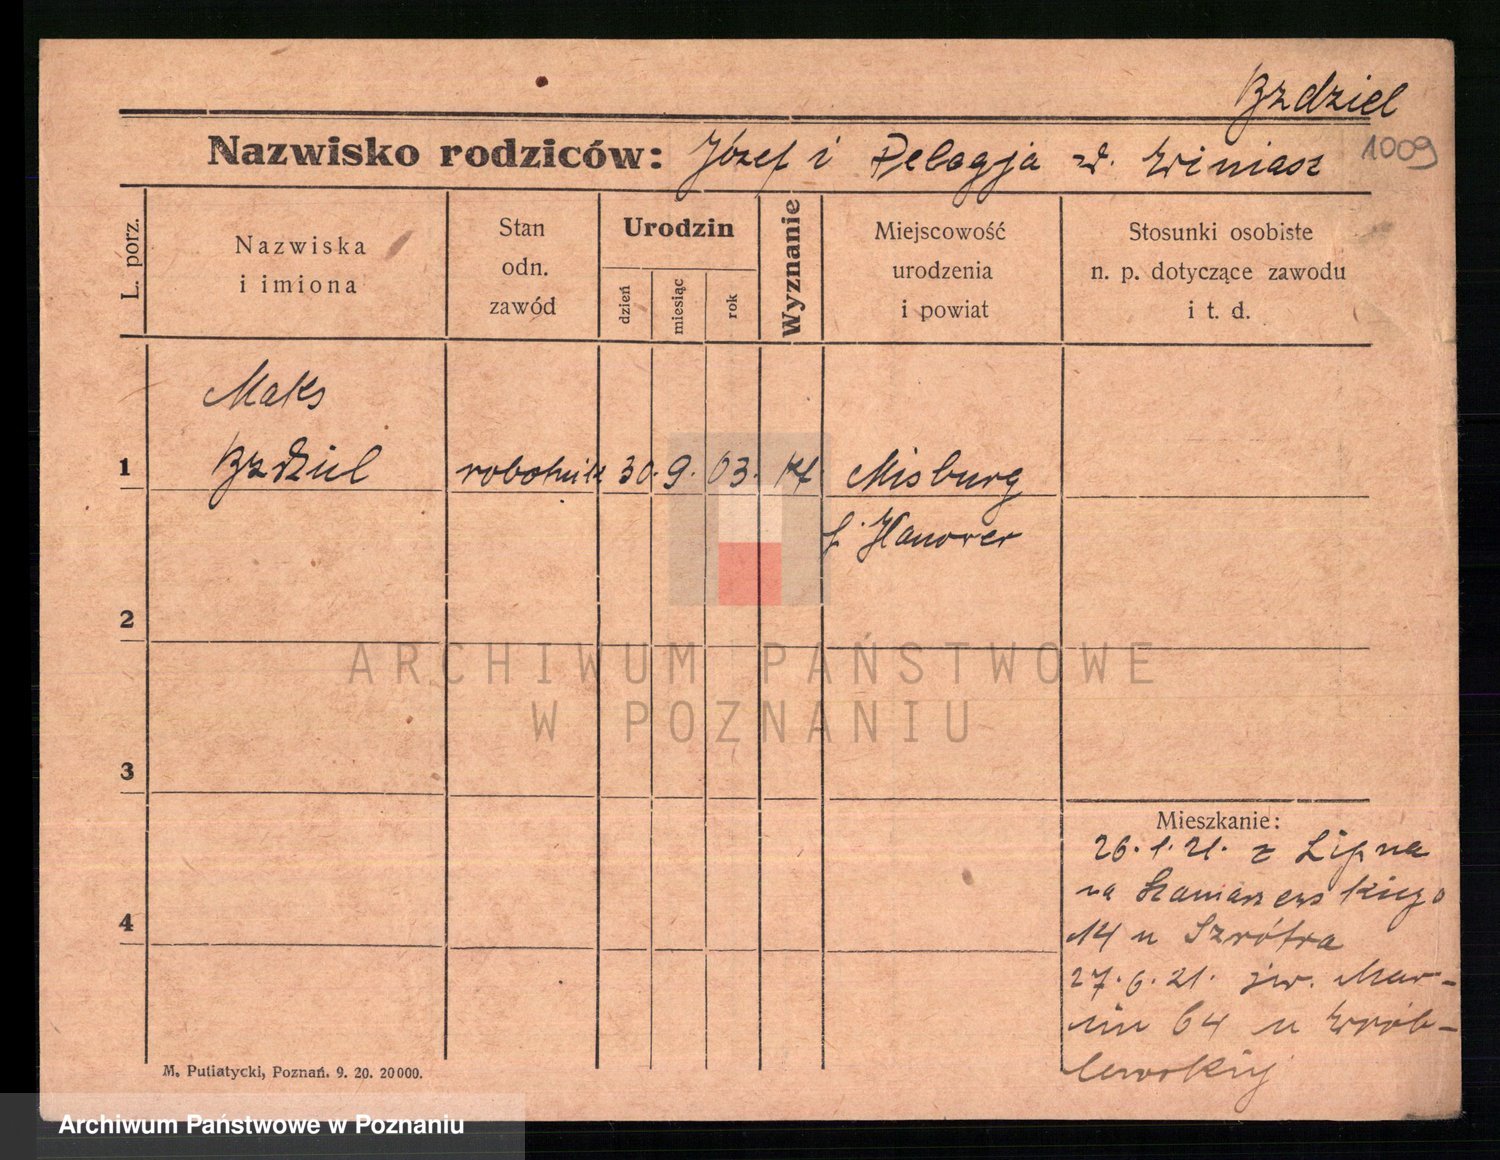 Bzdziel
Nazwisko rodziców: Józef i Pelagja z d. Winiasz 1009
L. porz.
Nazwiska
i imiona
Stan
odn.
zawód
Urodzin
dzień
miesiąc
rok
Wyznanie
Miejscowość
urodzenia
i powiat
Stosunki osobiste
n. p. dotyczące zawodu
i t. d.
Maks
1 Bzdziel robotnik 30. 9. 03. kt Misburg
f. Hanower
2
3
4
Mieszkanie:
26.1.21. z Lipna
na Szamarzewskiego
14 u Szrótra
27.6.21. św. Mar-
cin 64 u Wrób-
lewskiej
M. Putiatycki, Poznań. 9. 20. 20000.
ARCHIWUM PAŃSTWOWE
W POZNANIU
Archiwum Państwowe w Poznaniu